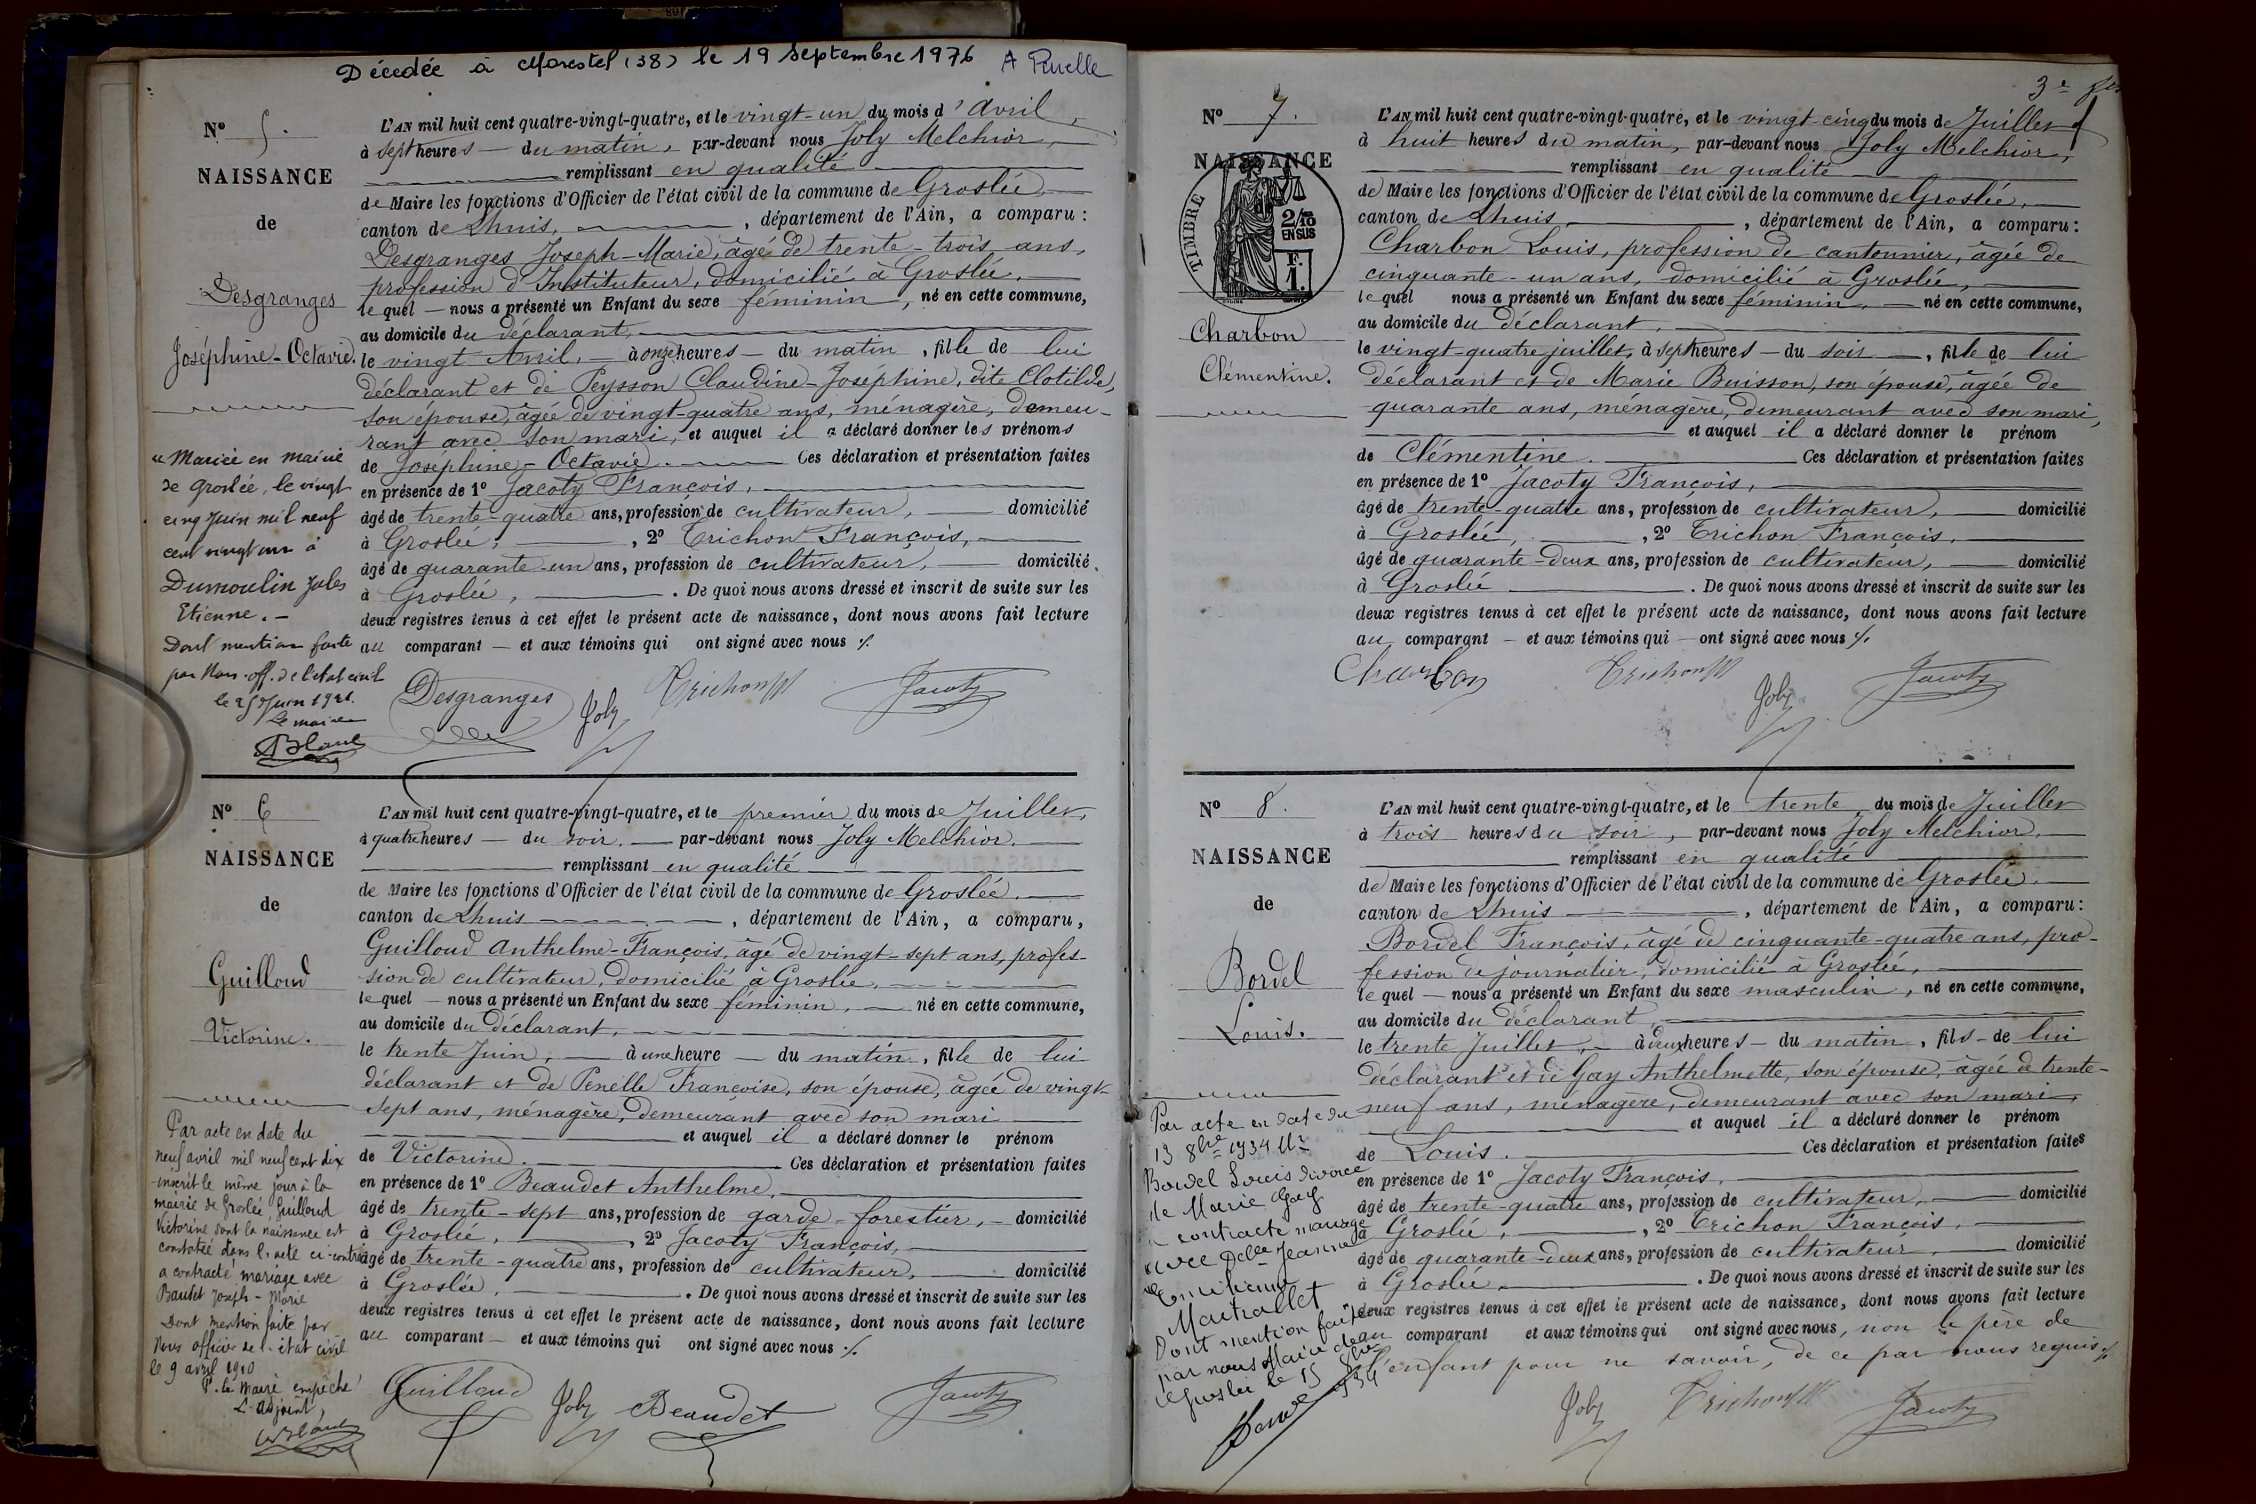 Décédée à Morestel (38) le 19 Septembre 1976
Nº 5.
NAISSANCE
de
Desgranges
Joséphine-Octavie.
L'AN mil huit cent quatre-vingt-quatre, et le vingt-un du mois d'avril,
à sept heures du matin, par-devant nous Joly Melchior,
remplissant en qualité
de Maire les fonctions d'Officier de l'état civil de la commune de Groslée,
canton de Lhuis, département de l'Ain, a comparu :
Desgranges Joseph-Marie, âgé de trente-trois ans,
profession d'Instituteur, domicilié à Groslée,
lequel nous a présenté un Enfant du sexe féminin, né en cette commune,
au domicile du déclarant,
le vingt Avril, à onze heures du matin, fille de lui
déclarant et de Peysson Claudine-Joséphine, dite Clotilde,
son épouse, âgée de vingt-quatre ans, ménagère, demeu-
rant avec son mari, et auquel il a déclaré donner les prénoms
de Joséphine-Octavie. Ces déclaration et présentation faites
en présence de 1º Jacoty François,
âgé de trente-quatre ans, profession de cultivateur, domicilié
à Groslée, 2º Trichon François,
âgé de quarante-un ans, profession de cultivateur, domicilié
à Groslée, . De quoi nous avons dressé et inscrit de suite sur les
deux registres tenus à cet effet le présent acte de naissance, dont nous avons fait lecture
au comparant et aux témoins qui ont signé avec nous ./.
Desgranges Joly Trichon Jacoty
Mariée en mairie
de Groslée, le vingt
cinq Juin mil neuf
cent vingt un à
Dumoulin Jules
Etienne. -
Dont mention faite
par Nous off. de l'état civil
le 25 Juin 1921.
Le maire
Nº 6
NAISSANCE
de
Guilloud
Victorine.
L'AN mil huit cent quatre-vingt-quatre, et le premier du mois de Juillet,
à quatre heures du soir, par-devant nous Joly Melchior,
remplissant en qualité
de Maire les fonctions d'Officier de l'état civil de la commune de Groslée,
canton de Lhuis, département de l'Ain, a comparu,
Guilloud Anthelme-François, âgé de vingt-sept ans, profes-
sion de cultivateur, domicilié à Groslée,
lequel nous a présenté un Enfant du sexe féminin, né en cette commune,
au domicile du déclarant,
le trente Juin, à une heure du matin, fille de lui
déclarant et de Penelle Françoise, son épouse, âgée de vingt-
sept ans, ménagère, demeurant avec son mari
et auquel il a déclaré donner le prénom
de Victorine. Ces déclaration et présentation faites
en présence de 1º Beaudet Anthelme,
âgé de trente-sept ans, profession de garde-forestier, domicilié
à Groslée, 2º Jacoty François,
âgé de trente-quatre ans, profession de cultivateur, domicilié
à Groslée, . De quoi nous avons dressé et inscrit de suite sur les
deux registres tenus à cet effet le présent acte de naissance, dont nous avons fait lecture
au comparant et aux témoins qui ont signé avec nous ./.
Guilloud Joly Beaudet Jacoty
Par acte en date du
neuf avril mil neuf cent dix
inscrit le même jour à la
mairie de Groslée Guilloud
Victorine dont la naissance est
constatée dans l'acte ci-contre
a contracté mariage avec
Baudet Joseph-Marie
Dont mention faite par
Nous officier de l'état civil
le 9 avril 1910
P. le Maire empêché
L'adjoint,
Nº 7.
NAISSANCE
TIMBRE
2/10
EN SUS
F.
1.
Charbon
Clémentine.
L'AN mil huit cent quatre-vingt-quatre, et le vingt-cinq du mois de Juillet
à huit heures du matin, par-devant nous Joly Melchior,
remplissant en qualité
de Maire les fonctions d'Officier de l'état civil de la commune de Groslée,
canton de Lhuis, département de l'Ain, a comparu :
Charbon Louis, profession de cantonnier, âgée de
cinquante-un ans, domicilié à Groslée,
lequel nous a présenté un Enfant du sexe féminin, né en cette commune,
au domicile du déclarant,
le vingt-quatre juillet, à sept heures du soir, fille de lui
déclarant et de Marie Buisson, son épouse, âgée de
quarante ans, ménagère, demeurant avec son mari,
et auquel il a déclaré donner le prénom
de Clémentine. Ces déclaration et présentation faites
en présence de 1º Jacoty François,
âgé de trente-quatre ans, profession de cultivateur, domicilié
à Groslée, 2º Trichon François,
âgé de quarante-deux ans, profession de cultivateur, domicilié
à Groslée . De quoi nous avons dressé et inscrit de suite sur les
deux registres tenus à cet effet le présent acte de naissance, dont nous avons fait lecture
au comparant et aux témoins qui ont signé avec nous ./.
Charbon Trichon Joly Jacoty
Nº 8.
NAISSANCE
de
Bordel
Louis.
L'AN mil huit cent quatre-vingt-quatre, et le trente du mois de Juillet
à trois heures du soir, par-devant nous Joly Melchior,
remplissant en qualité
de Maire les fonctions d'Officier de l'état civil de la commune de Groslée,
canton de Lhuis, département de l'Ain, a comparu :
Bordel François, âgé de cinquante-quatre ans, pro-
fession de journalier, domicilié à Groslée,
lequel nous a présenté un Enfant du sexe masculin, né en cette commune,
au domicile du déclarant,
le trente Juillet, à deux heures du matin, fils de lui
déclarant et de Gay Anthelmette, son épouse, âgée de trente-
neuf ans, ménagère, demeurant avec son mari,
et auquel il a déclaré donner le prénom
de Louis. Ces déclaration et présentation faites
en présence de 1º Jacoty François,
âgé de trente-quatre ans, profession de cultivateur, domicilié
à Groslée, 2º Trichon François,
âgé de quarante-deux ans, profession de cultivateur, domicilié
à Groslée . De quoi nous avons dressé et inscrit de suite sur les
deux registres tenus à cet effet le présent acte de naissance, dont nous avons fait lecture
au comparant et aux témoins qui ont signé avec nous, non le père de
l'enfant pour ne savoir, de ce par nous requis ./.
Joly Trichon Jacoty
Par acte en date du
13 8bre 1934 Mr
Bordel Louis divorcé
de Marie Gay
a contracté mariage
avec Delle Jeanne
Emilienne
Dont mention faite
par nous Maire de
Groslée le 15 8bre
1934